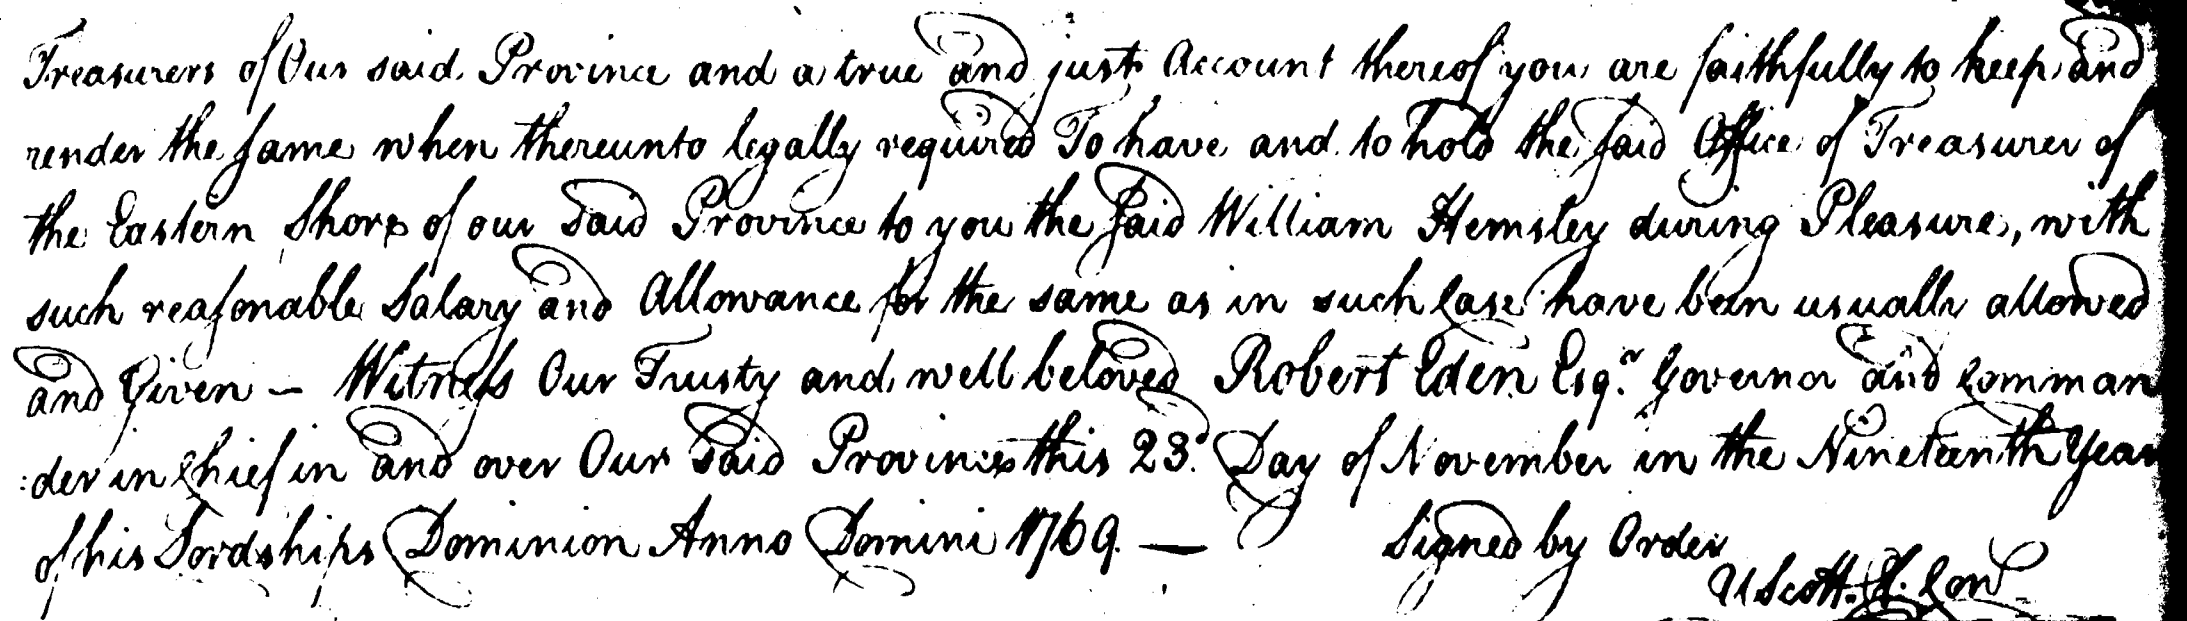 Treasurers of Our said Province and a true and just Account thereof you are faithfully to keep and
render the same when thereunto legally required To have and to hold the said Office of Treasurer of
the Eastern Shore of our Said Province to you the said William Hemsley during Pleasure, with
such reasonable Salary and Allowance for the same as in such Case have been usually allowed
and Given — Witness Our Trusty and well beloved Robert Eden Esqr. Governor and Comman
:der in Chief in and over Our Said Province this 23d. Day of November in the Nineteenth Year
of his Lordships Dominion Anno Domini 1769. —   Signed by Order
U Scott. Cl. Con